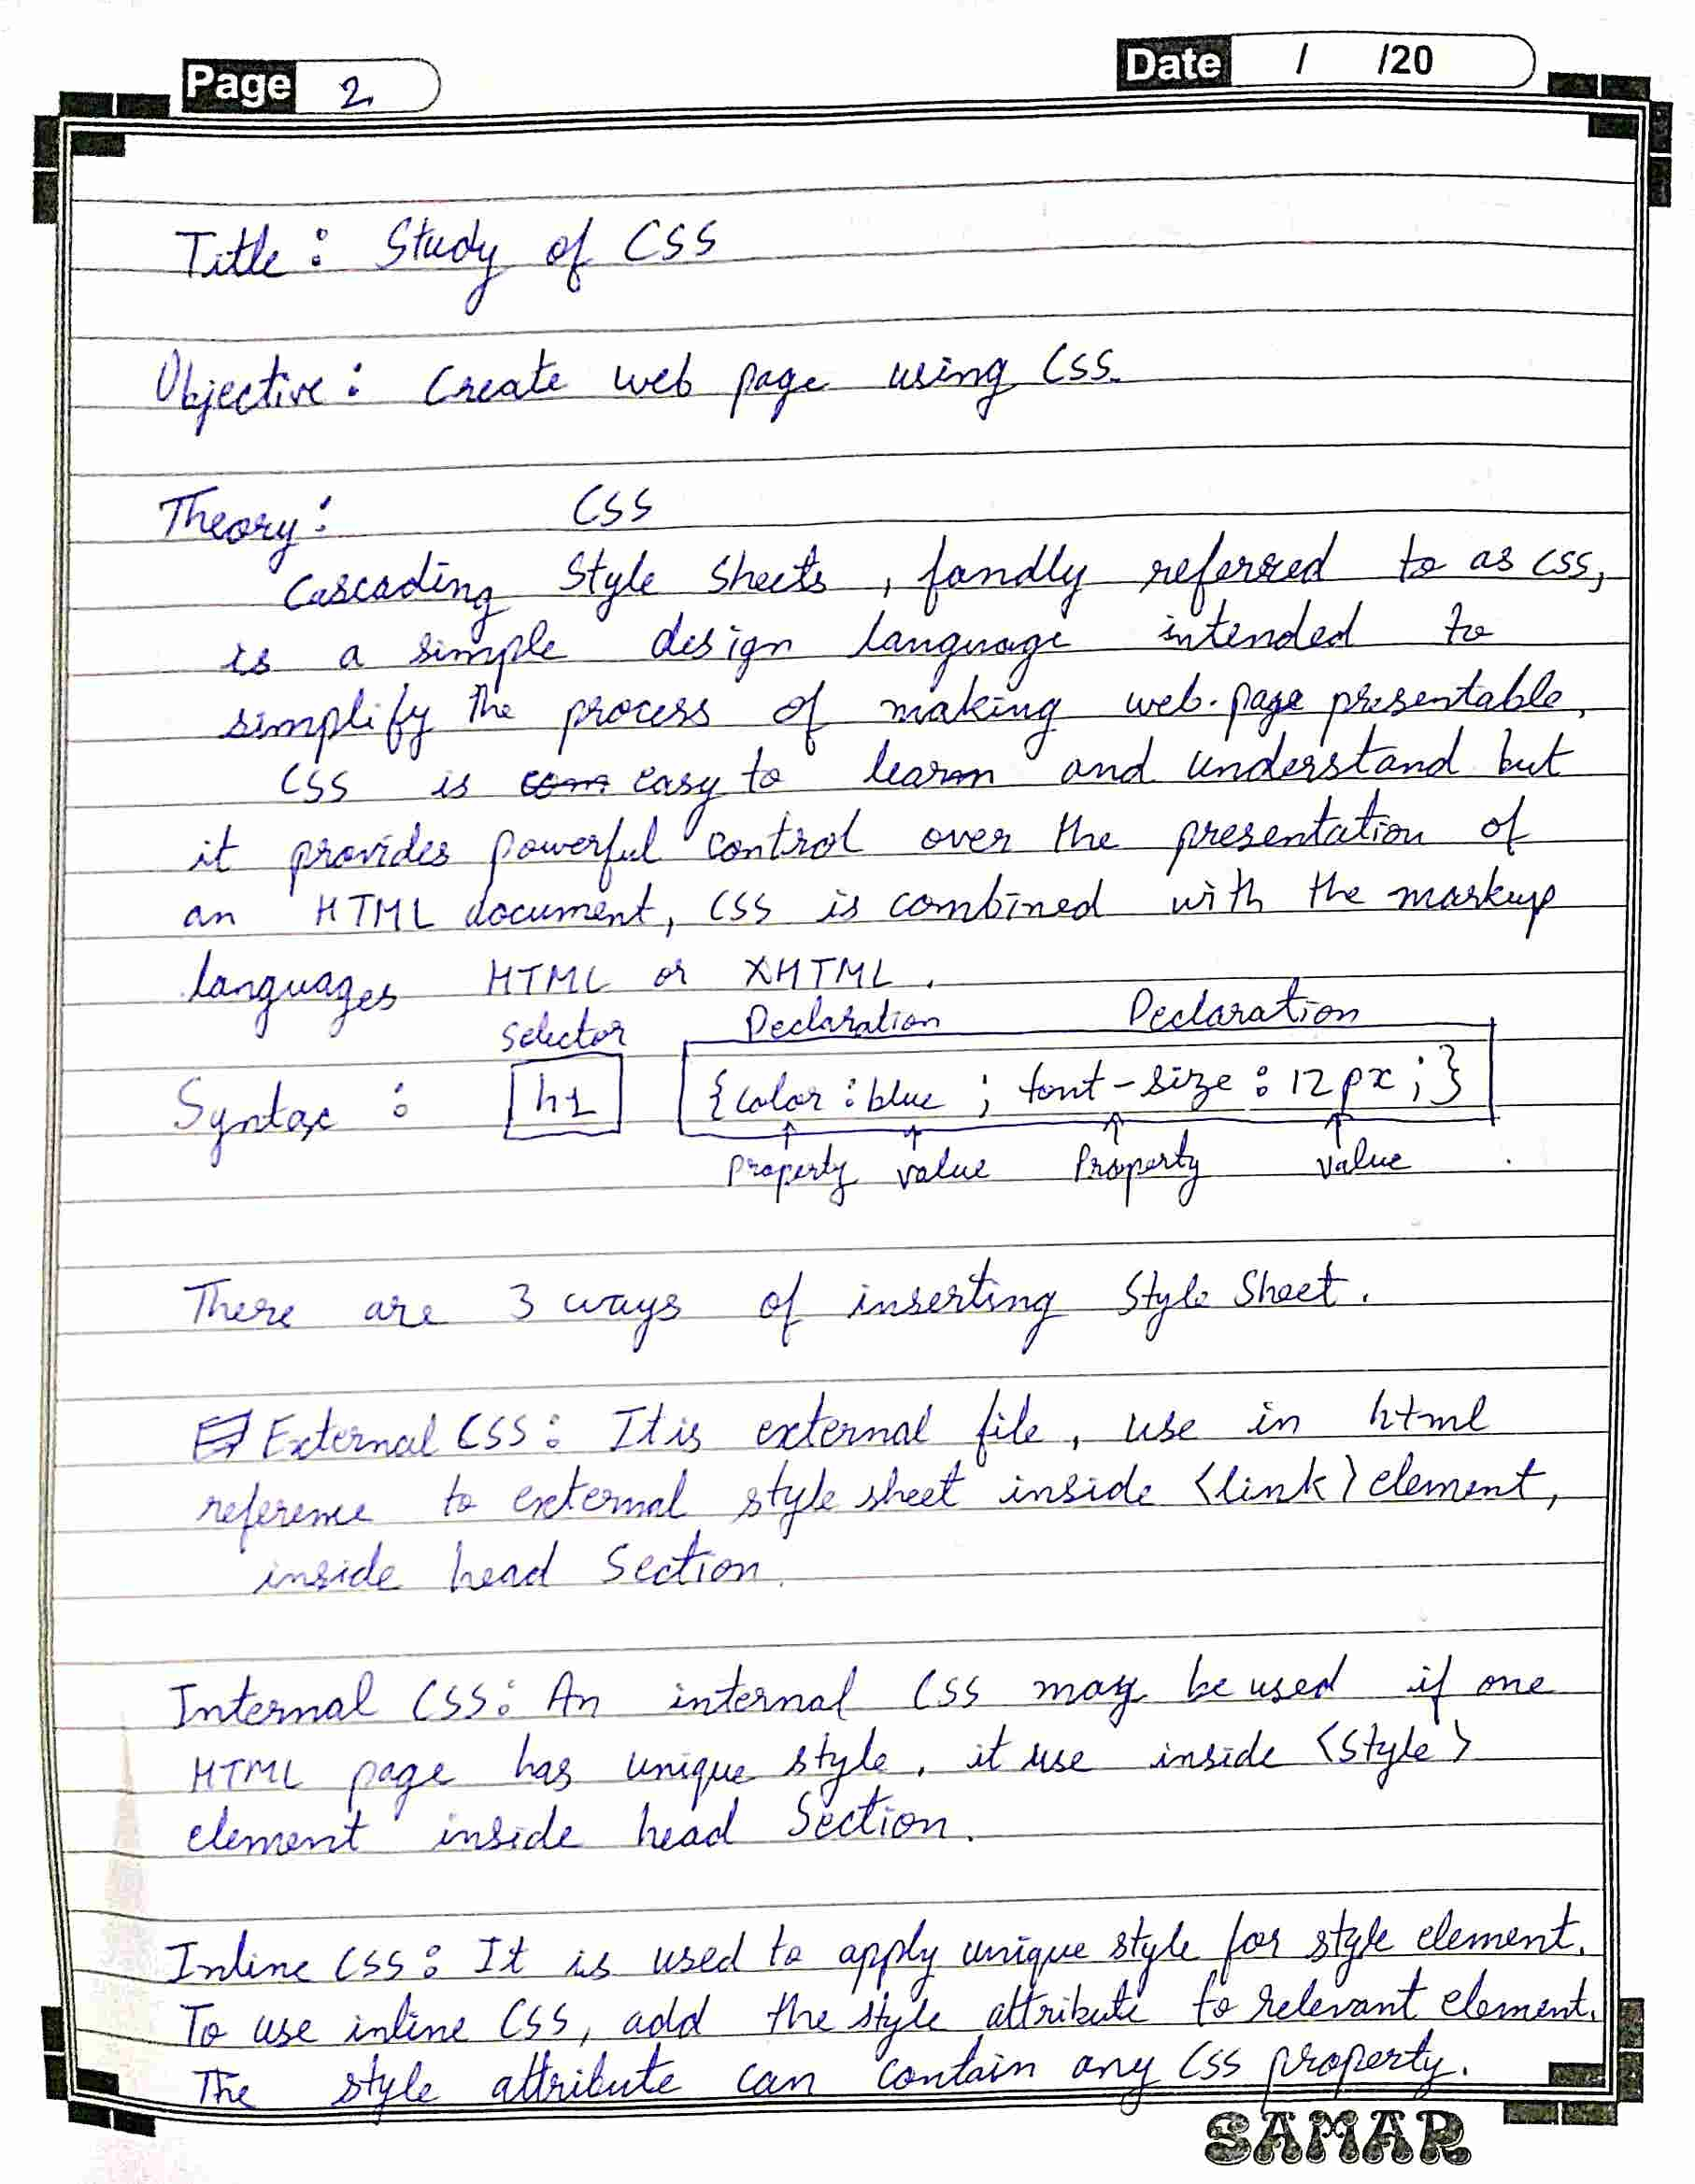 Page 2
Date / /20
Title : Study of CSS
Objective : Create web page using CSS.
Theory : CSS
Cascading Style Sheets , fondly referred to as CSS,
is a simple design language intended to
simplify the process of making web-page presentable.
CSS is easy to learn and understand but
it provides powerful control over the presentation of
an HTML document, CSS is combined with the markup
languages HTML or XHTML .
Selector Declaration Declaration
Syntax : h1 {color : blue ; font-size : 12px ; }
Property value Property value
There are 3 ways of inserting Style Sheet .
External CSS : It is external file , use in html
reference to external style sheet inside <link> element,
inside head Section.
Internal CSS : An internal CSS may be used if one
HTML page has unique style . it use inside <style>
element inside head Section .
Inline CSS : It is used to apply unique style for style element.
To use inline CSS, add the style attribute to relevant element.
The style attribute can contain any CSS property.
SAMAR